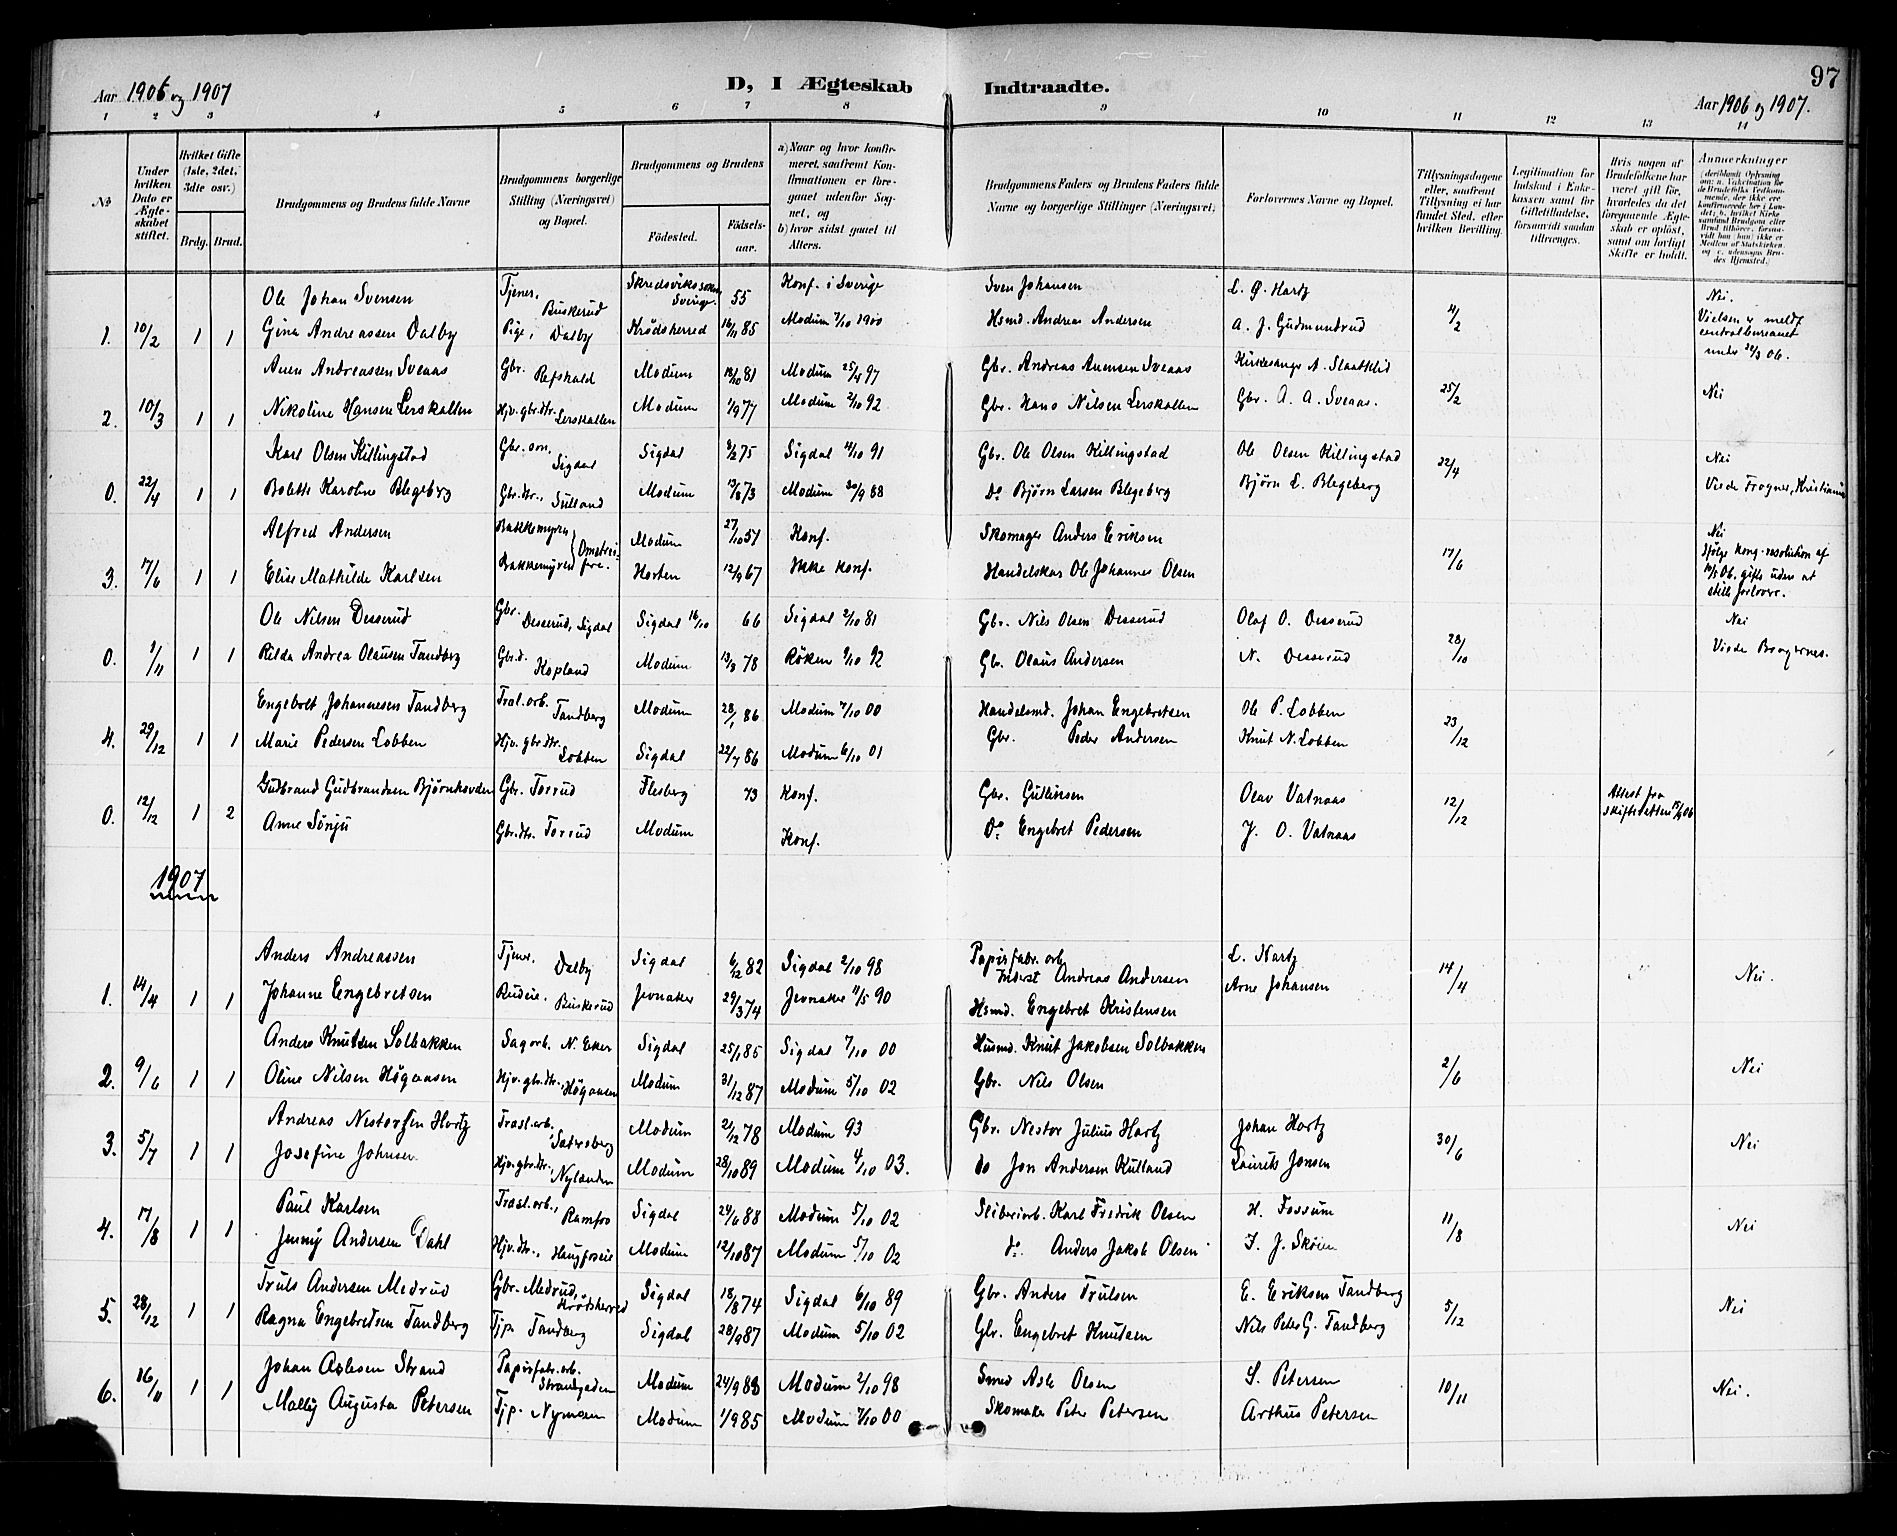 97
Aar 1906 og 1907
D, I Ægteskab Indtraadte.
Aar 1906 og 1907.
1 2 3 4 5 6 7 8 9 10 11 12 13 14
No
Under hvilken Dato er Ægteskabet stiftet.
Hvilket Gifte (1ste, 2det, 3die osv.)
Brdg. Brud.
Brudgommens og Brudens fulde Navne
Brudgommens borgerlige Stilling (Næringsvei) og Bopæl.
Brudgommens og Brudens
Fødested. Fødselsaar.
a) Naar og hvor konfirmeret, saafremt Konfirmationen er foregaaet udenfor Sognet, og
b) hvor sidst gaaet til Alters.
Brudgommens Faders og Brudens Faders fulde Navne og borgerlige Stillinger (Næringsvei)
Forlovernes Navne og Bopæl.
Tillysningsdagene eller, saafremt Tillysning ei har fundet Sted, efter hvilken Bevilling.
Legitimation for Indskud i Enkekassen samt for Giftetilladelse, forsaavidt saadan tiltrænges.
Hvis nogen af Brudefolkene har været gift før, hvorledes da det foregaaende Ægteskab er opløst, samt om lovligt Skifte er holdt.
Anmerkninger
Ole Johan Svensen Tjener, Buskerud Skredsviks sokn Sverige. 55 Konf. i Sverige Sven Johansen L. G. Hartz Nei.
1. 10/2 1 1 Gina Andreassen Dalby Pige, Dalby Krødsherred 16/11 85 Modum 7/10 1900 Hsmd. Andreas Andersen A. J. Gudmundrud 4/2 Vielsen er meldt centralbureauet under 22/3 06.
Auen Andreassen Sveaas Gbr. Refshald Modum 18/10 81 Modum 25/4 97 Gbr. Andreas Auensen Sveaas Kirkesanger A. Slaatelid
2. 10/3 1 1 Nikoline Hansen Lerskallen Hjv. gbr.dtr. Lerskallen Modum 1/9 77 Modum 2/10 92 Gbr. Hans Nilsen Lerskallen Gbr. A. A. Sveaas. 25/2 Nei
Karl Olsen Killingstad Gbr. søn, Sigdal Sigdal 8/2 75 Sigdal 4/10 91 Gbr. Ole Olsen Killingstad Ole Olsen Killingstad Nei
0. 22/4 1 1 Bolette Karoline Blegeberg Gbr.dtr., Sulland Modum 13/8 73 Modum 30/9 88 Do Bjørn Larsen Blegeberg Bjørn L. Blegeberg 22/4 Viede Frogner, Kristiania
Alfred Andersen Bakkemyren Modum 27/10 51 Konf. Skomager Anders Eriksen Nei
3. 17/6 1 1 Elise Mathilde Karlsen Bakkemyren Horten 12/9 67 Ikke konf. Handelskar Ole Johannes Olsen 17/6 Ifølge kong. resolution af 10/5 06. gifte uden at stille forlovere.
Ole Nilsen Desserud Gbr. Desserud, Sigdal Sigdal 16/10 66 Sigdal 2/10 81 Gbr. Nils Olsen Desserud Olaf O. Desserud Nei
0. 1/11 1 1 Rilda Andrea Olausen Tandberg Gbr.d. Kopland Modum 13/3 78 Røken 9/10 92 Gbr. Olaus Andersen N. Desserud 28/10 Viede Bragernes.
Engebret Johannesen Tandberg Træl.arb. Tandberg Modum 28/1 86 Modum 7/10 00 Handelsmd. Johan Engebretsen Ole P. Lobben
4. 29/12 1 1 Marie Pedersen Lobben Hjv. gbr.dtr. Lobben Sigdal 22/7 86 Modum 6/10 01 Gbr. Peder Andersen Knut N. Lobben 23/12
Gudbrand Gudbrandsen Bjørnhovden Gbr. Forrud Flesberg 73 Konf. Gbr. Gullinsen Olav Vatnaas
0. 12/12 1 2 Anne Sønju Gbr.dtr. Forrud Modum Konf. Do Engebret Pedersen J. O. Vatnaas 12/12 Attest fra skifteretten 06
1907
Anders Andreassen Tjener. Dalby Sigdal 6/12 82 Sigdal 2/10 98 Papirfabr. arb. Inderst Andreas Andersen L. Hartz
1. 14/4 1 1 Johanne Engebretsen Budeie. Buskerud Jevnaker 29/3 74 Jevnaker 11/5 90 Hsmd. Engebret Kristensen Arne Johansen 14/4 Nei.
Anders Knutsen Solbakken Sagarb. N. Eker Sigdal 25/1 85 Sigdal 7/10 00 Husmd. Knut Jakobsen Solbakken
2. 9/6 1 1 Oline Nilsen Høgaasen Hjv. gbr.dtr., Høgaasen Modum 31/12 87 Modum 5/10 02 Gbr. Nils Olsen 2/6 Nei
Andreas Nestorsen Hartz Træsl.arb. Sætersberg Modum 2/12 78 Modum 93 Gbr. Nestor Julius Hartz Johan Hartz
3. 5/7 1 1 Josefine Johnsen Hjv. gbr.dtr., Nylanden Modum 28/10 89 Modum 4/10 03. do Jon Andersen Kulland Laurits Jonsen 30/6 Nei
Paul Karlsen Træsl.arb., Ramfos Sigdal 29/6 88 Modum 5/10 02 Sliberiarb. Karl Fredrik Olsen H. Fossum
4. 17/8 1 1 Jenny Andersen Dahl Hjv. dtr., Haugfosseie Modum 12/10 87 Modum 5/10 02 do. Anders Jakob Olsen J. J. Skøien 11/8 Nei
Truls Andersen Medrud Gbr. Medrud, Krødsherred Sigdal 18/8 74 Sigdal 6/10 89 Gbr. Anders Trulsen E. Eriksen Tandberg
5. 28/12 1 1 Ragna Engebretsen Tandberg Tjp. Tandberg Sigdal 28/9 87 Modum 5/10 02 Gbr. Engebret Knutsen Nils Peter G. Tandberg 5/12 Nei
Johan Aslesen Strand Papirfabr.arb. Strandgaden Modum 24/9 83 Modum 2/10 98 Smed Asle Olsen S. Petersen
6. 16/11 1 1 Mally Augusta Petersen Tjp. Nymoen Modum 1/9 85 Modum 7/10 00 Skomaker Peter Petersen Arthur Petersen 10/11 Nei.